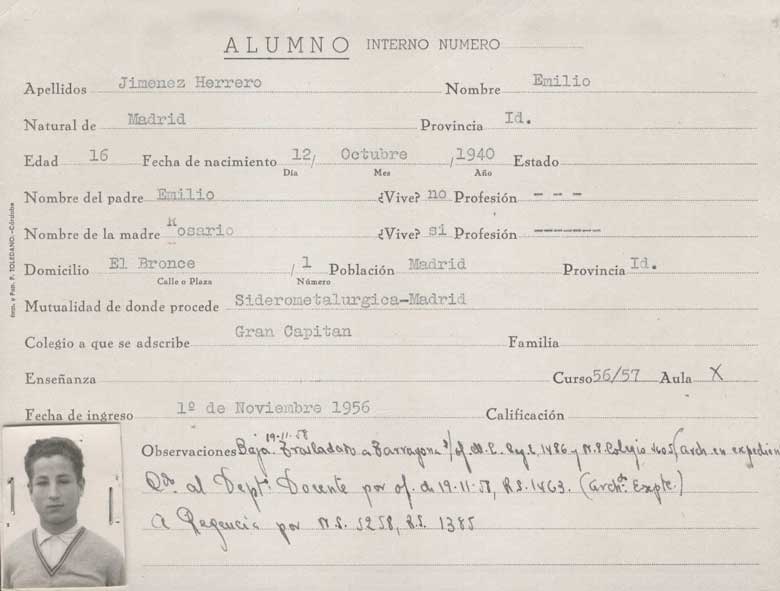 ALUMNO INTERNO NUMERO
Apellidos Jimenez Herrero Nombre Emilio
Natural de Madrid Provincia Id.
Edad 16 Fecha de nacimiento 12/ Octubre /1940 Estado
Día Mes Año
Nombre del padre Emilio ¿Vive? no Profesión - - -
Nombre de la madre Rosario ¿Vive? si Profesión ------
Domicilio El Bronce /1 Población Madrid Provincia Id.
Calle o Plaza Número
Mutualidad de donde procede Siderometalurgica-Madrid
Colegio a que se adscribe Gran Capitan Familia
Enseñanza Curso 56/57 Aula X
Fecha de ingreso 1º de Noviembre 1956 Calificación
19-11-58
Observaciones Baja. Trasladado a Tarragona s/ of. Reg. 1486 y N.S. Colegio 4405 (arch. en expedien
al Deptº Docente por of. de 19-11-58, R.S. 1463. (archdo Expte.)
a Regencia por N.S. 5258, R.S. 1385
Imp. y Pap. F. TOLEDANO.-Córdoba